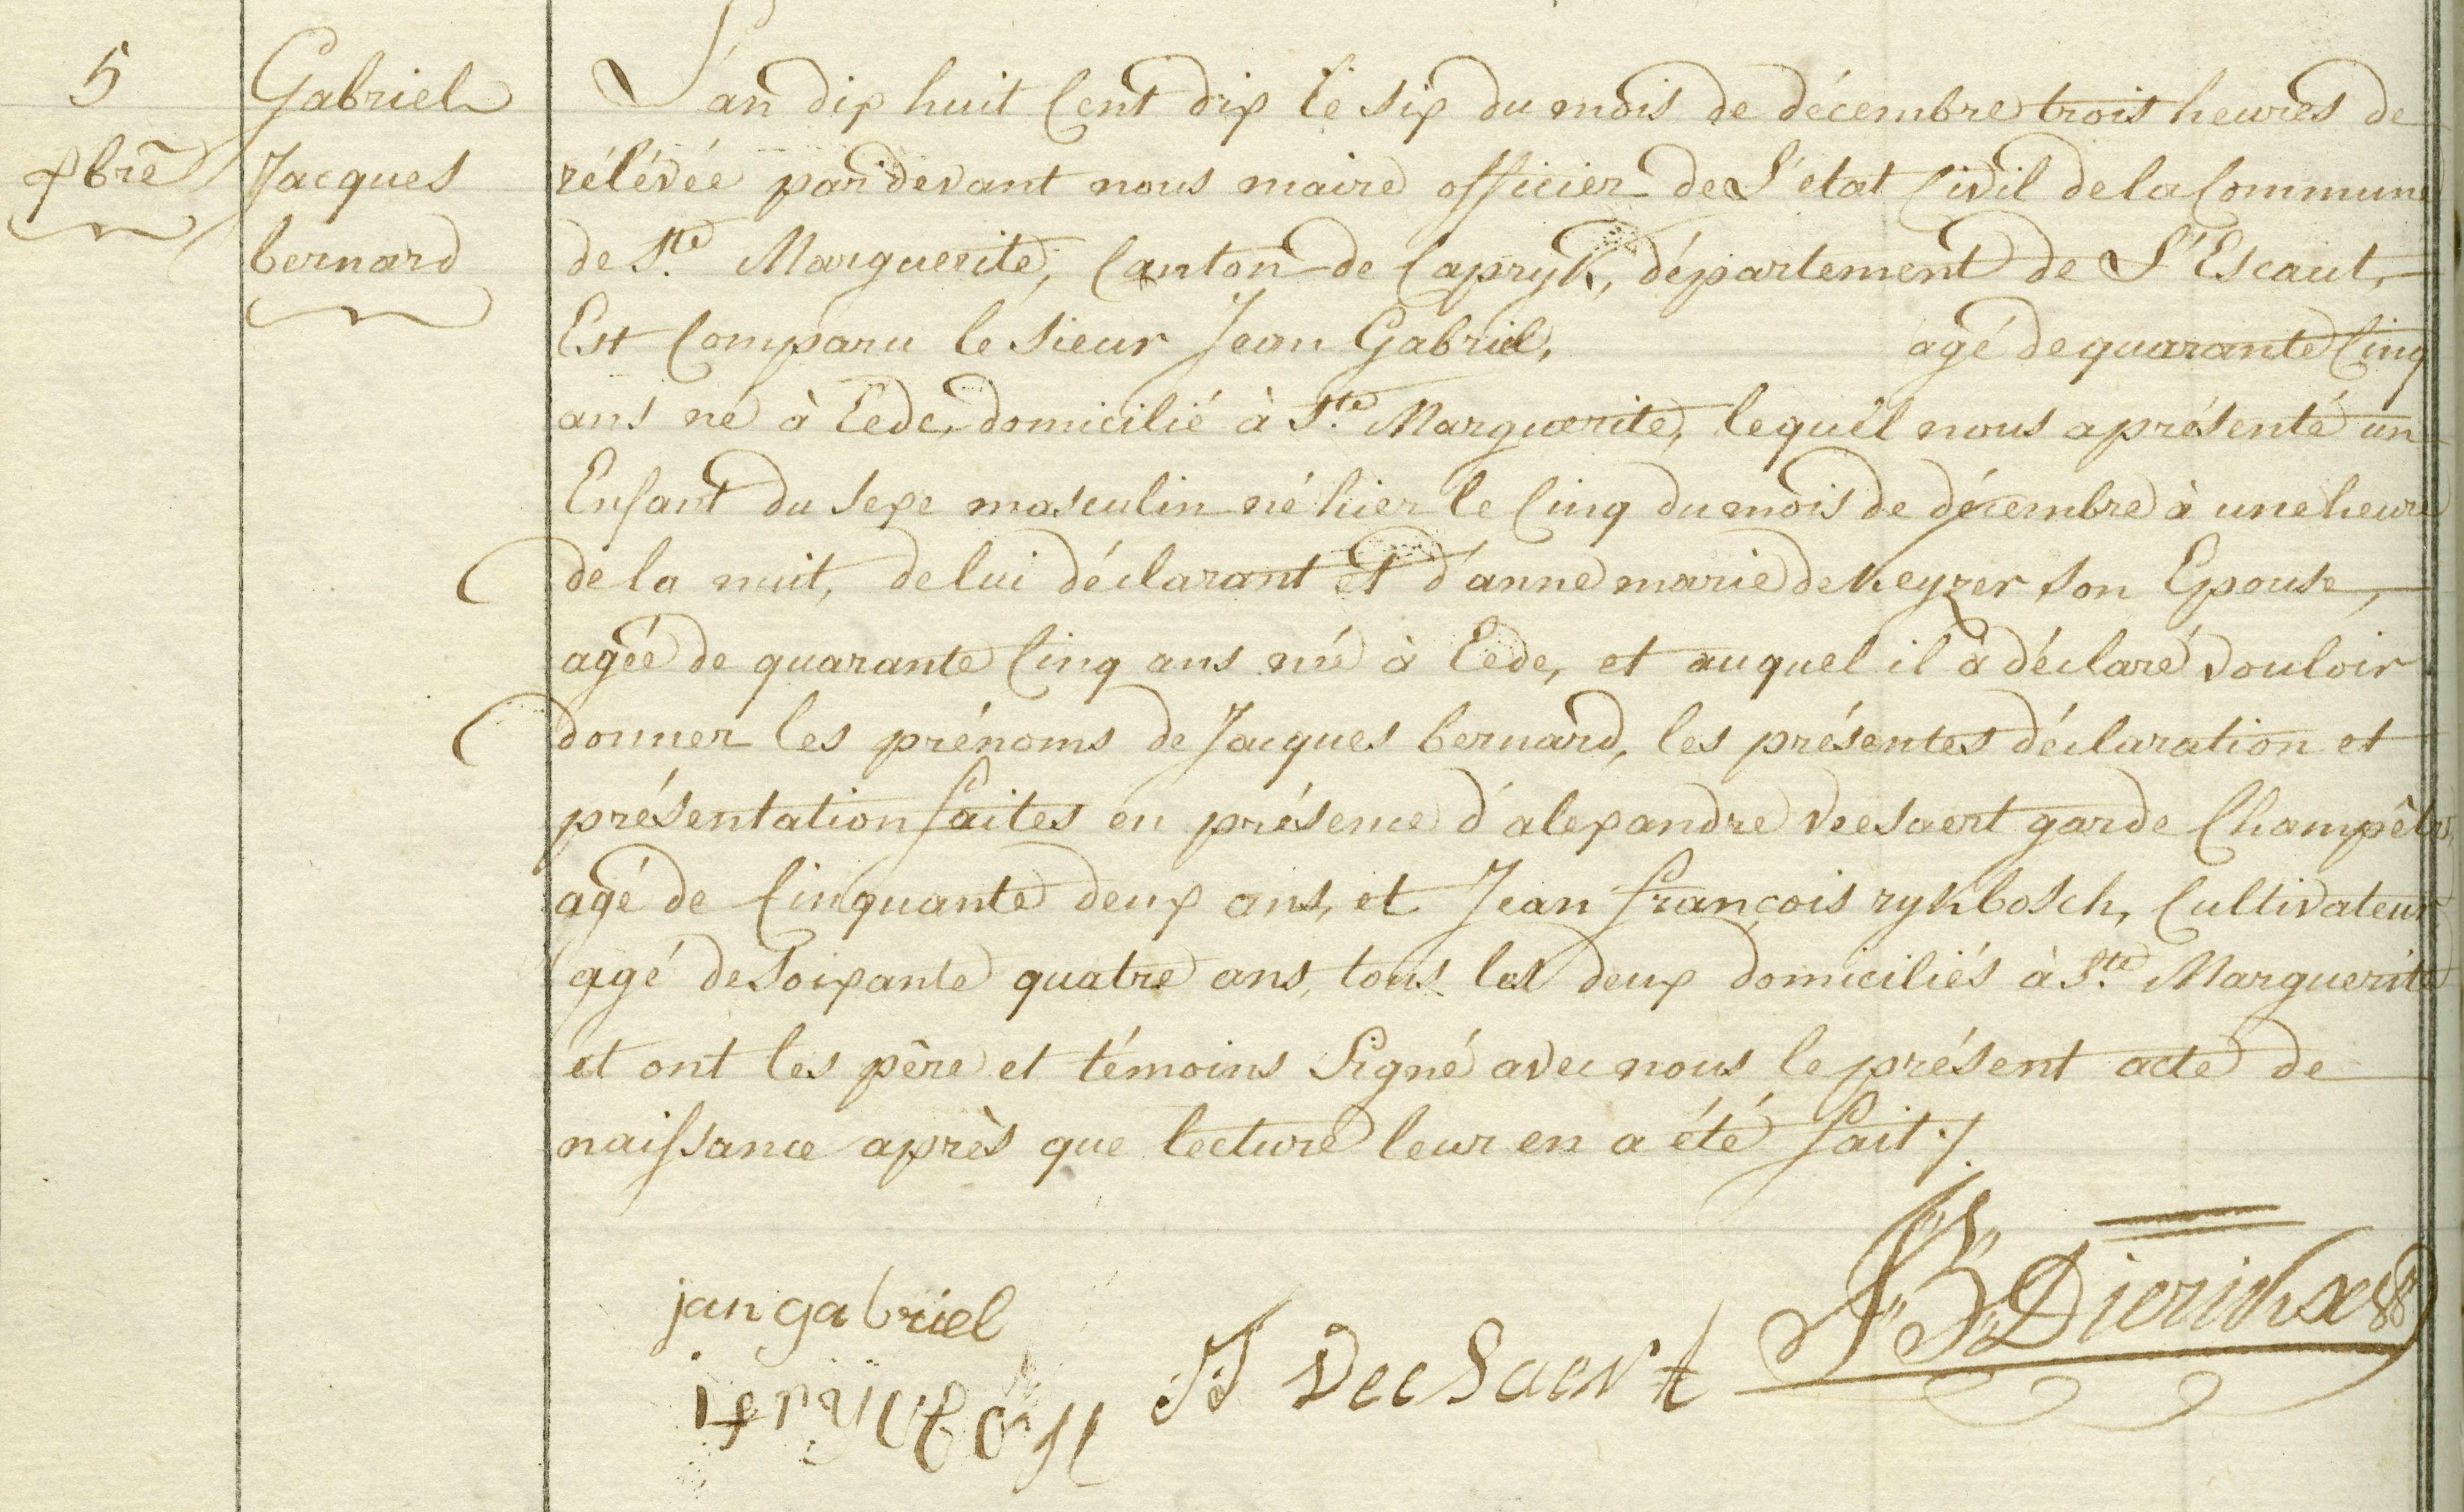 5
xbre
Gabriel
Jacques
bernard
L'an dix huit Cent dix le six du mois de décembre trois heures de
rélévée pardevant nous maire officier de L'etat Civil de la Commune
de Ste. Marguerite, Canton de Capryk, département de L'Escaut,
Est Comparu le sieur Jean Gabriel, agé de quarante Cinq
ans né à Eede, domicilié à Ste. Marguerite, lequel nous a présenté un
Enfant du sexe masculin né hier le Cinq du mois de décembre à une heure
de la nuit, de lui déclarant et d'anne marie dekeyzer son Epouse,
agée de quarante Cinq ans né à Eede, et auquel il à déclaré vouloir
donner les prénoms de Jacques bernard, les présentes déclaration et
présentation faites en présence d'alexandre veesaert garde Champêtre
agé de Cinquante deux ans, et Jean françois rykbosch, Cultivateur
agé de Soixante quatre ans, tous les deux domiciliés à Ste. Marguerite
et ont les père et témoins Signé avec nous le présent acte de
naissance après que lecture leur en a été fait ./.
jan gabriel
VeeSaert
Dierickx